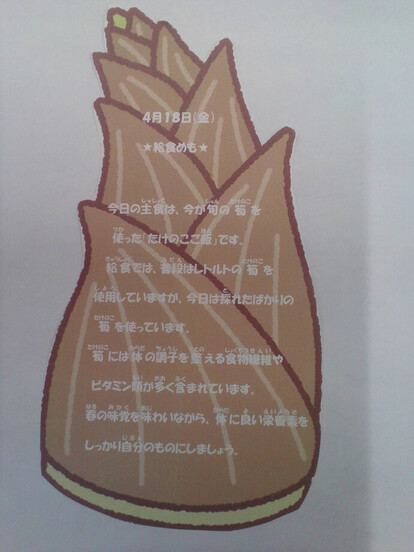 4月18日(金)
★給食めも★
今日の主食は、今が旬の 筍 を
使った「たけのこご飯」です。
給食では、普段はレトルトの 筍 を
使用していますが、今日は採れたばかりの
筍 を使っています。
筍 には体の調子を整える食物繊維や
ビタミン類が多く含まれています。
春の味覚を味わいながら、体に良い栄養素を
しっかり自分のものにしましょう。